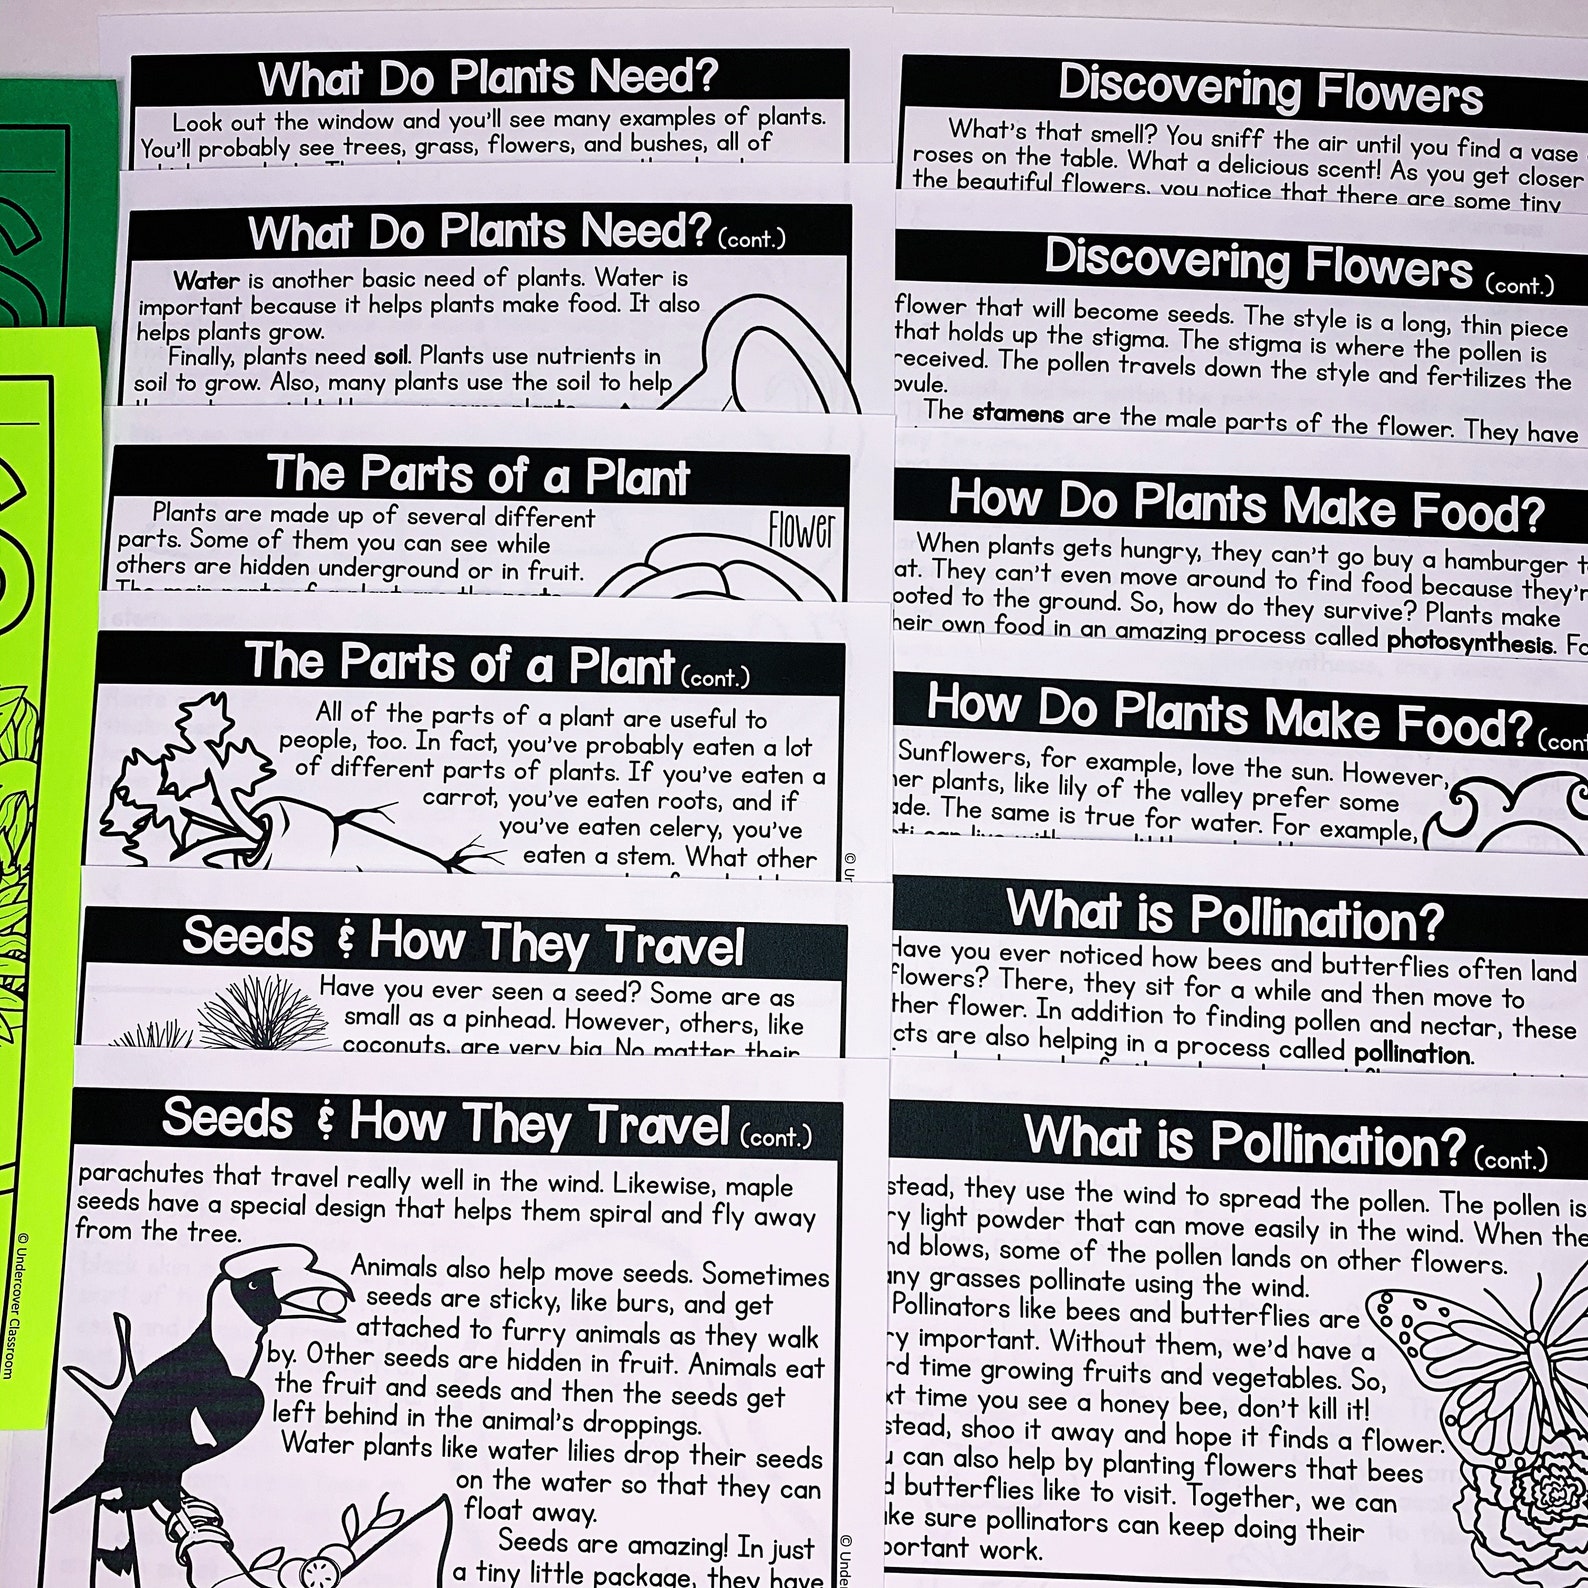 What Do Plants Need?
Look out the window and you'll see many examples of plants.
You'll probably see trees, grass, flowers, and bushes, all of
What Do Plants Need? (cont.)
Water is another basic need of plants. Water is
important because it helps plants make food. It also
helps plants grow.
Finally, plants need soil. Plants use nutrients in
soil to grow. Also, many plants use the soil to help
The Parts of a Plant
Plants are made up of several different
parts. Some of them you can see while
others are hidden underground or in fruit.
The main parts of a plant are the
Flower
The Parts of a Plant (cont.)
All of the parts of a plant are useful to
people, too. In fact, you've probably eaten a lot
of different parts of plants. If you've eaten a
carrot, you've eaten roots, and if
you've eaten celery, you've
eaten a stem. What other
Seeds & How They Travel
Have you ever seen a seed? Some are as
small as a pinhead. However, others, like
coconuts, are very big. No matter their
Seeds & How They Travel (cont.)
parachutes that travel really well in the wind. Likewise, maple
seeds have a special design that helps them spiral and fly away
from the tree.
Animals also help move seeds. Sometimes
seeds are sticky, like burs, and get
attached to furry animals as they walk
by. Other seeds are hidden in fruit. Animals eat
the fruit and seeds and then the seeds get
left behind in the animal's droppings.
Water plants like water lilies drop their seeds
on the water so that they can
float away.
Seeds are amazing! In just
a tiny little package, they have
Discovering Flowers
What's that smell? You sniff the air until you find a vase
roses on the table. What a delicious scent! As you get closer
the beautiful flowers, you notice that there are some tiny
Discovering Flowers (cont.)
flower that will become seeds. The style is a long, thin piece
that holds up the stigma. The stigma is where the pollen is
received. The pollen travels down the style and fertilizes the
ovule.
The stamens are the male parts of the flower. They have
How Do Plants Make Food?
When plants gets hungry, they can't go buy a hamburger
at. They can't even move around to find food because they'r
ooted to the ground. So, how do they survive? Plants make
heir own food in an amazing process called photosynthesis. Fo
How Do Plants Make Food? (cont
Sunflowers, for example, love the sun. However,
her plants, like lily of the valley prefer some
ade. The same is true for water. For example,
What is Pollination?
Have you ever noticed how bees and butterflies often land
flowers? There, they sit for a while and then move to
ther flower. In addition to finding pollen and nectar, these
cts are also helping in a process called pollination.
What is Pollination? (cont.)
stead, they use the wind to spread the pollen. The pollen is
ry light powder that can move easily in the wind. When the
nd blows, some of the pollen lands on other flowers.
any grasses pollinate using the wind.
Pollinators like bees and butterflies are
ry important. Without them, we'd have a
rd time growing fruits and vegetables. So,
xt time you see a honey bee, don't kill it!
stead, shoo it away and hope it finds a flower.
u can also help by planting flowers that bees
d butterflies like to visit. Together, we can
ake sure pollinators can keep doing their
portant work.
© Undercover Classroom
© Ur
© Under